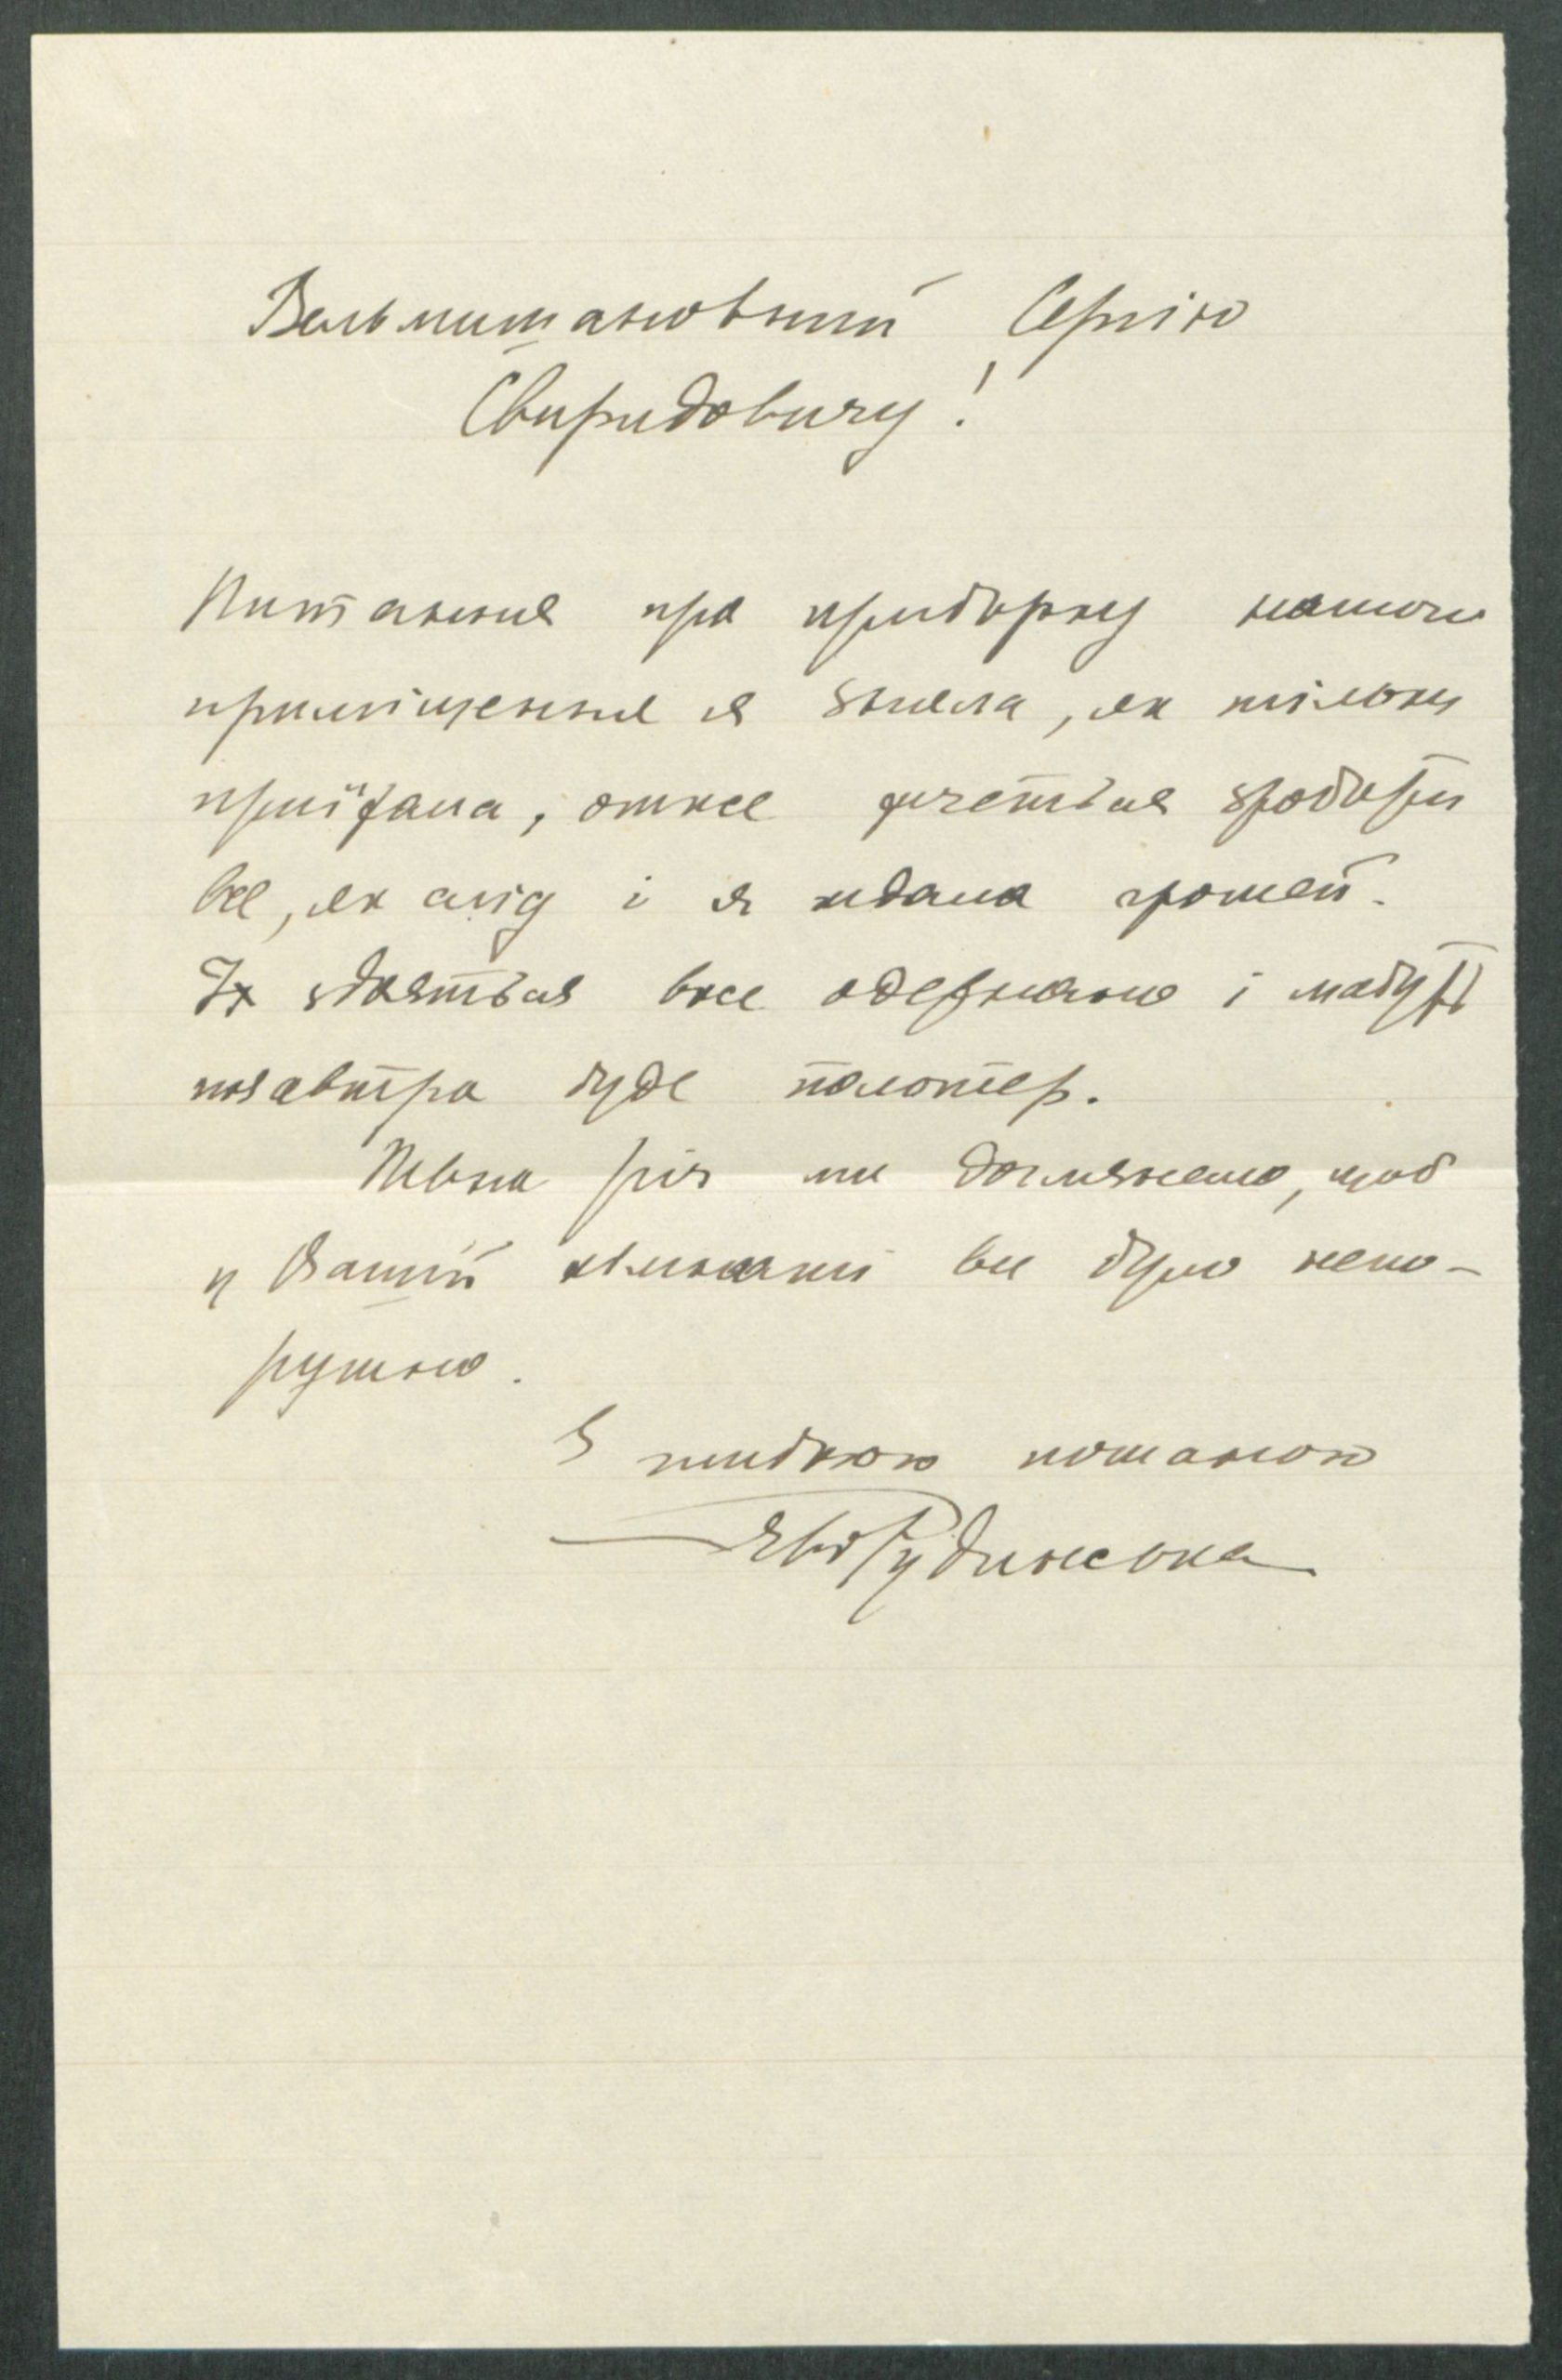 Вельмишановний Сергію
Свиридовичу!
Питання про приборку нашого
приміщення я зняла, як тільки
приїхала, отже хочеться зробити
все, як слід і я ждала грошей.
Їх здається вже одержано і мабуть
позавтра буде полотер.
Певна річ ми доглянемо, щоб
у Вашій кімнаті все було непо-
рушно.
З глибокою пошаною
Рудинська